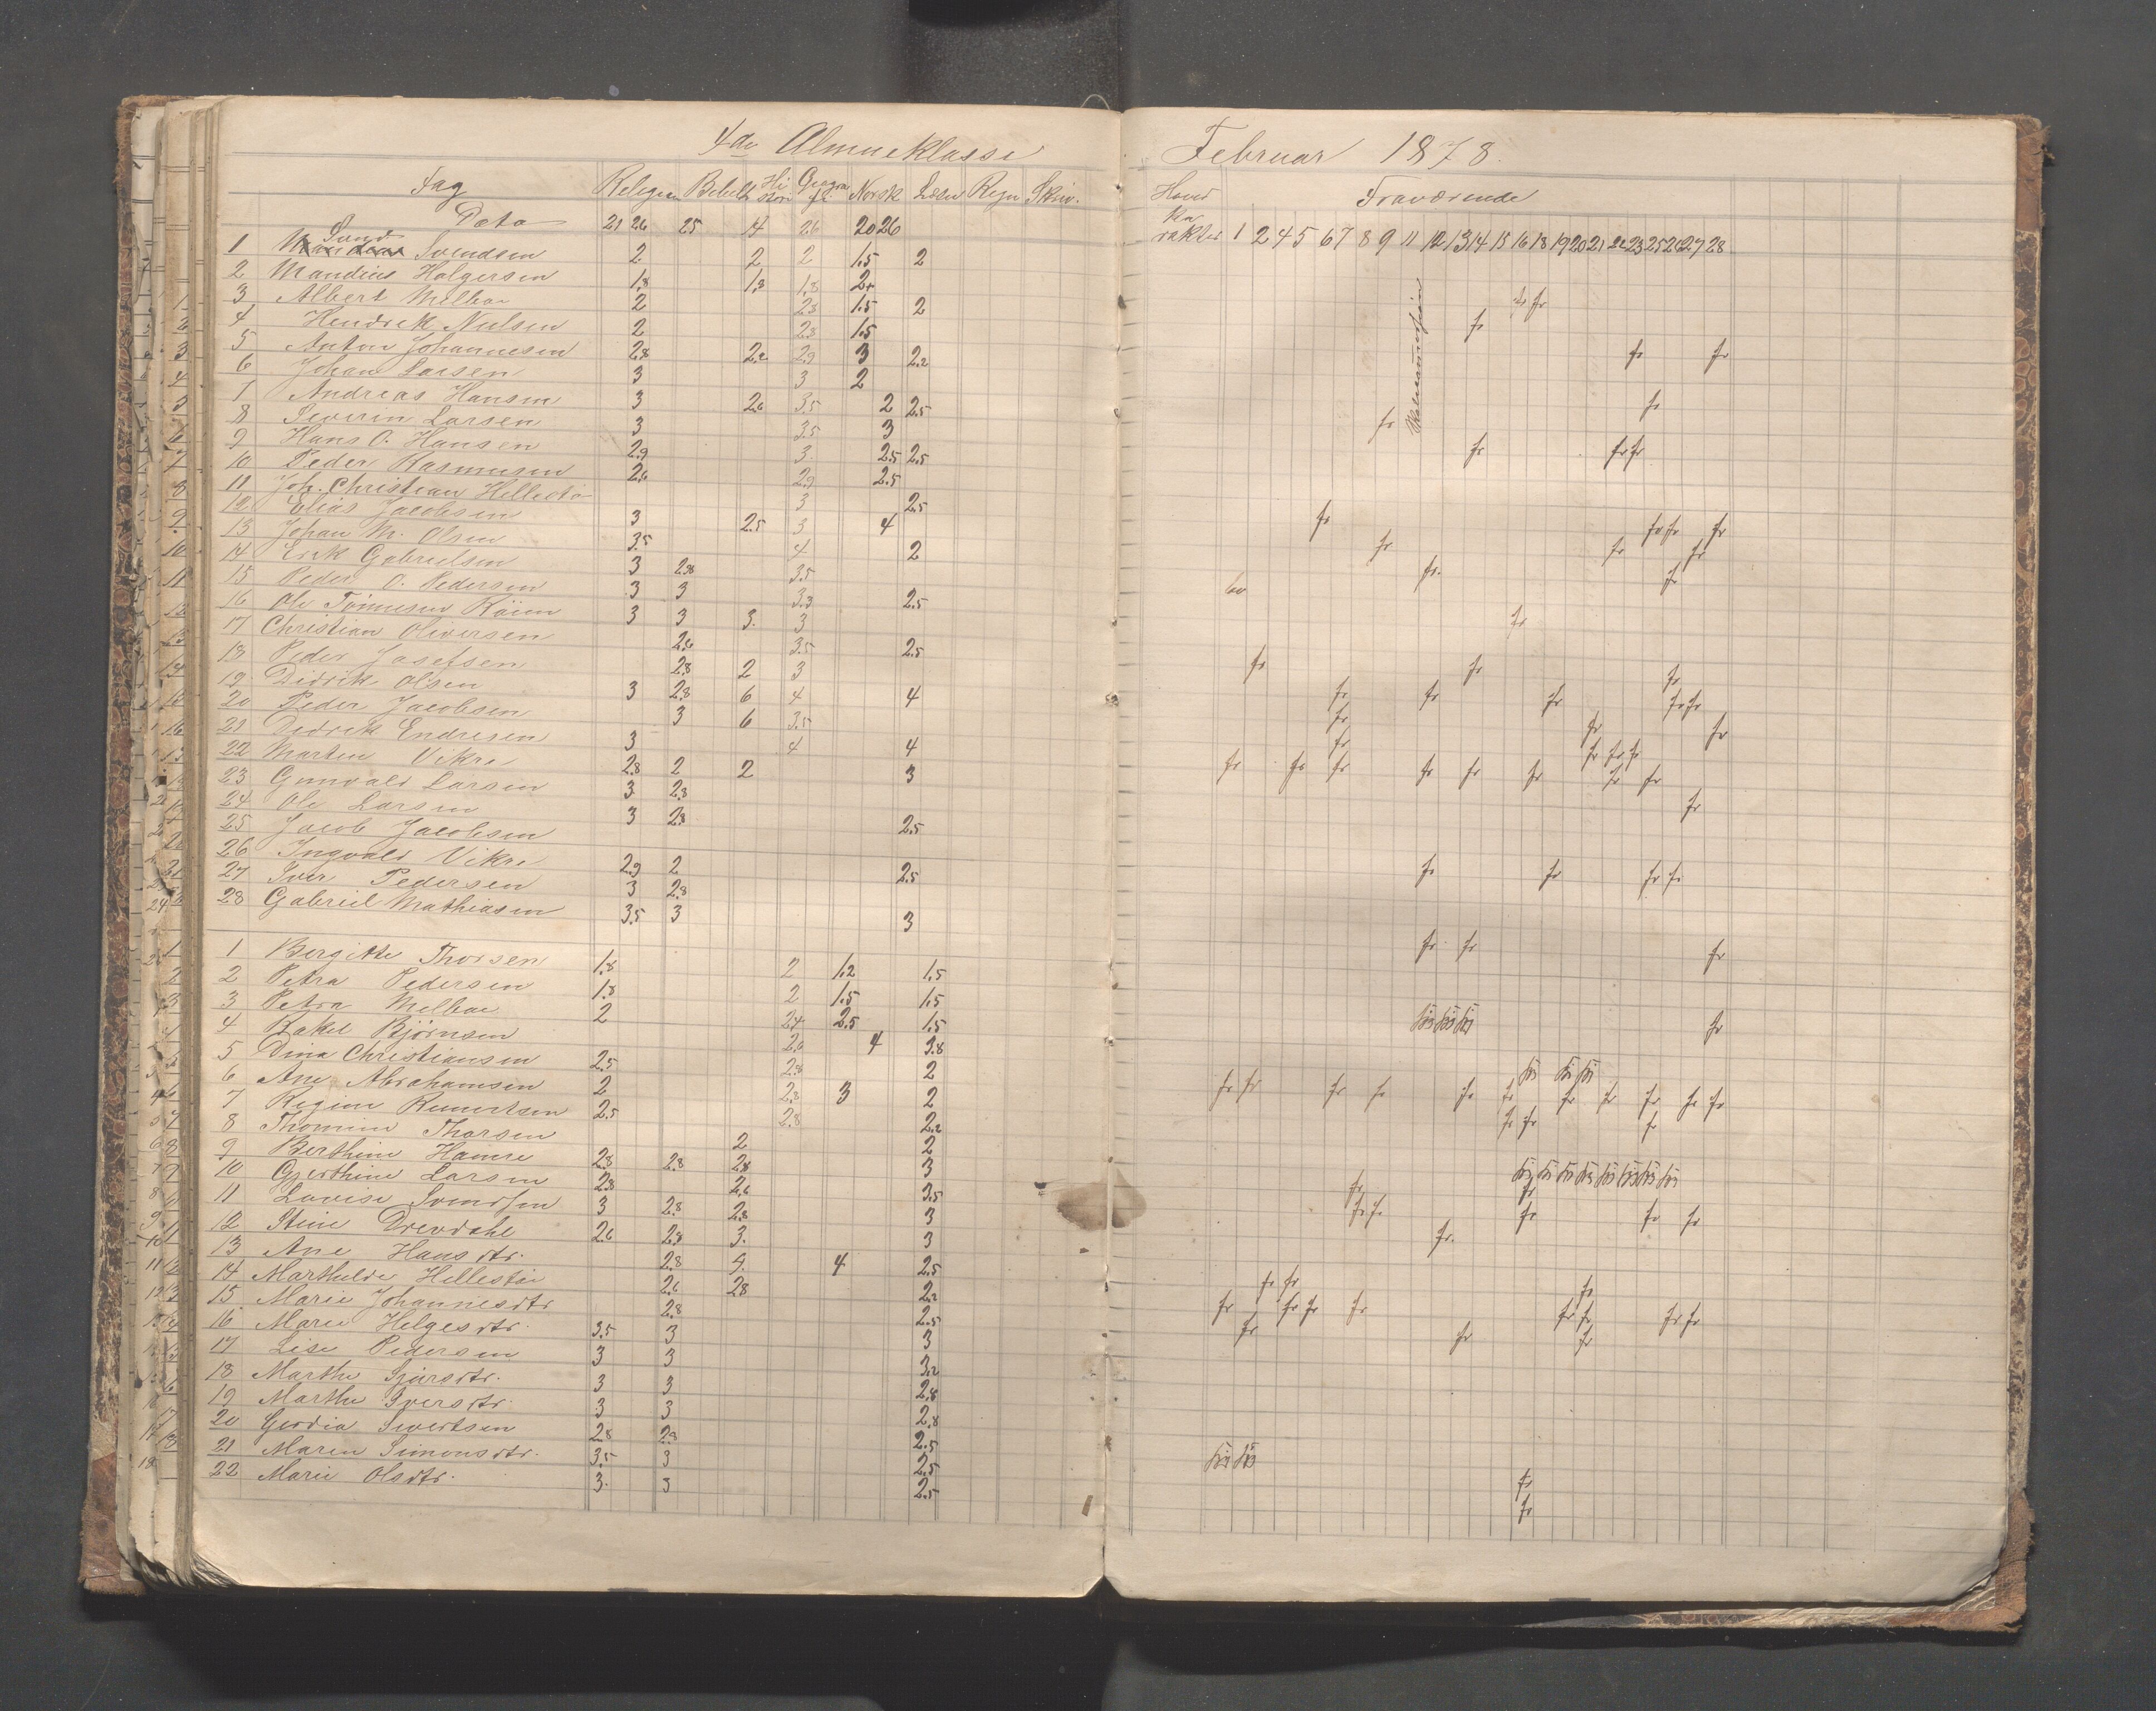 4de Almueklasse
Fag Religion Bibelh Histori Geografi Norsk Læsn Regn Skriv.
Dato 21 26 25 4 26 20 26
1 Svend Svendsen 2 2 2 1.5 2
2 Mandius Holgersen 1.8 1.8 1.8 2+
3 Albert Melbœ 2 2.3 1.5 2
4 Hendrik Nielsen 2 2.3 1.5
5 Anton Johannesen 2.8 2.2 2.9 3 2.2
6 Johan Larsen 3 3 2
7 Andreas Hansen 3 2.6 3.5 2 2.5
8 Severin Larsen 3 3.5 3
9 Hans O. Hansen 2.9 3 2.5 2.5
10 Peder Rasmusen 2.6 2.9 2.5
11 Joh. Christian Hellestø 3 2.5
12 Elias Jacobsen 3 2.5 3 4
13 Johan M. Olsen 3.5 4 2
14 Erik Gabrielsen 3 2.8 3.5
15 Peder O. Pedersen 3 3 3.3 2.5
16 Ole Tønnesen 3 3 3. 3
17 Christian Oliversen 2.6 3.5 2.5
18 Peder Josefsen 2.8 2 3
19 Didrik Olsen 3 2.8 6 4 4
20 Peder Jacobsen 3 6 3.5
21 Didrik Endresen 3 4 4
22 Martin Vikre 2.8 2 2 3
23 Gunvald Larsen 3 2.8
24 Ole Larsen 3 2.8 2.5
25 Jacob Jacobsen
26 Ingvald Vikre 2.9 2 2.5
27 Iver Pedersen 3 2.8
28 Gabriel Mathiasen 3.5 3 3
1 Bergitte Thorsen 1.8 2 1.2 1.5
2 Petra Pedersen 1.8 2 1.5 1.5
3 Petra Melbœ 2 2.4 2.5 1.5
4 Rakel Bjørnsen 2.6 4 3.8
5 Dina Christiansen 2.5 2.8 2
6 Ane Abrahamsen 2 2.8 3 2
7 Regine Reinertsen 2.5 2.8 2.2
8 Thomine Thorsen 2 2
9 Berthine Hamre 2.8 2.8 2.8 3
10 Gjerthine Larsen 2.8 2.6 3.5
11 Lovise Svendsen 3 2.8 2.8 3
12 Stine Drevdahl 2.6 2.8 3. 3
13 Ane Hansdtr. 2.8 4 2.5
14 Marthilde Hellestø 2.6 2.8 2.2
15 Marie Johannesdtr 2.8 2.5
16 Marie Helgesdtr. 3.5 3 3
17 Lise Pedersen 3 3 3.2
18 Marthe 3 3 2.8
19 Marthe Iversdtr. 3 3 2.8
20 Gerdia Sivertsen 2.8 2.8 2.5
21 Maren Simonsdtr. 3.5 3 2.5
22 Marie Olsdtr. 3. 3 2.5
Februar 1878.
Hoved Fraværende
karakter 1 2 4 5 6 7 8 9 11 12 13 14 15 16 18 19 20 21 22 23 25 26 27 28
fr fr
fr
fr fr
fr
fr
fr fr fr
fr fr fr fr
fr fr fr
fr. fr
fr
fr fr fr
fr fr fr fr fr
fr fr fr
fr fr fr fr
fr fr fr fr fr fr fr fr
fr
fr fr fr fr
fr fr fr
fr
fr fr fr fr fr fr fr fr fr fr fr
fr fr fr
fr fr
fr fr fr fr fr
fr.
fr fr fr
fr fr fr fr fr fr fr fr
fr fr fr
fr
fr